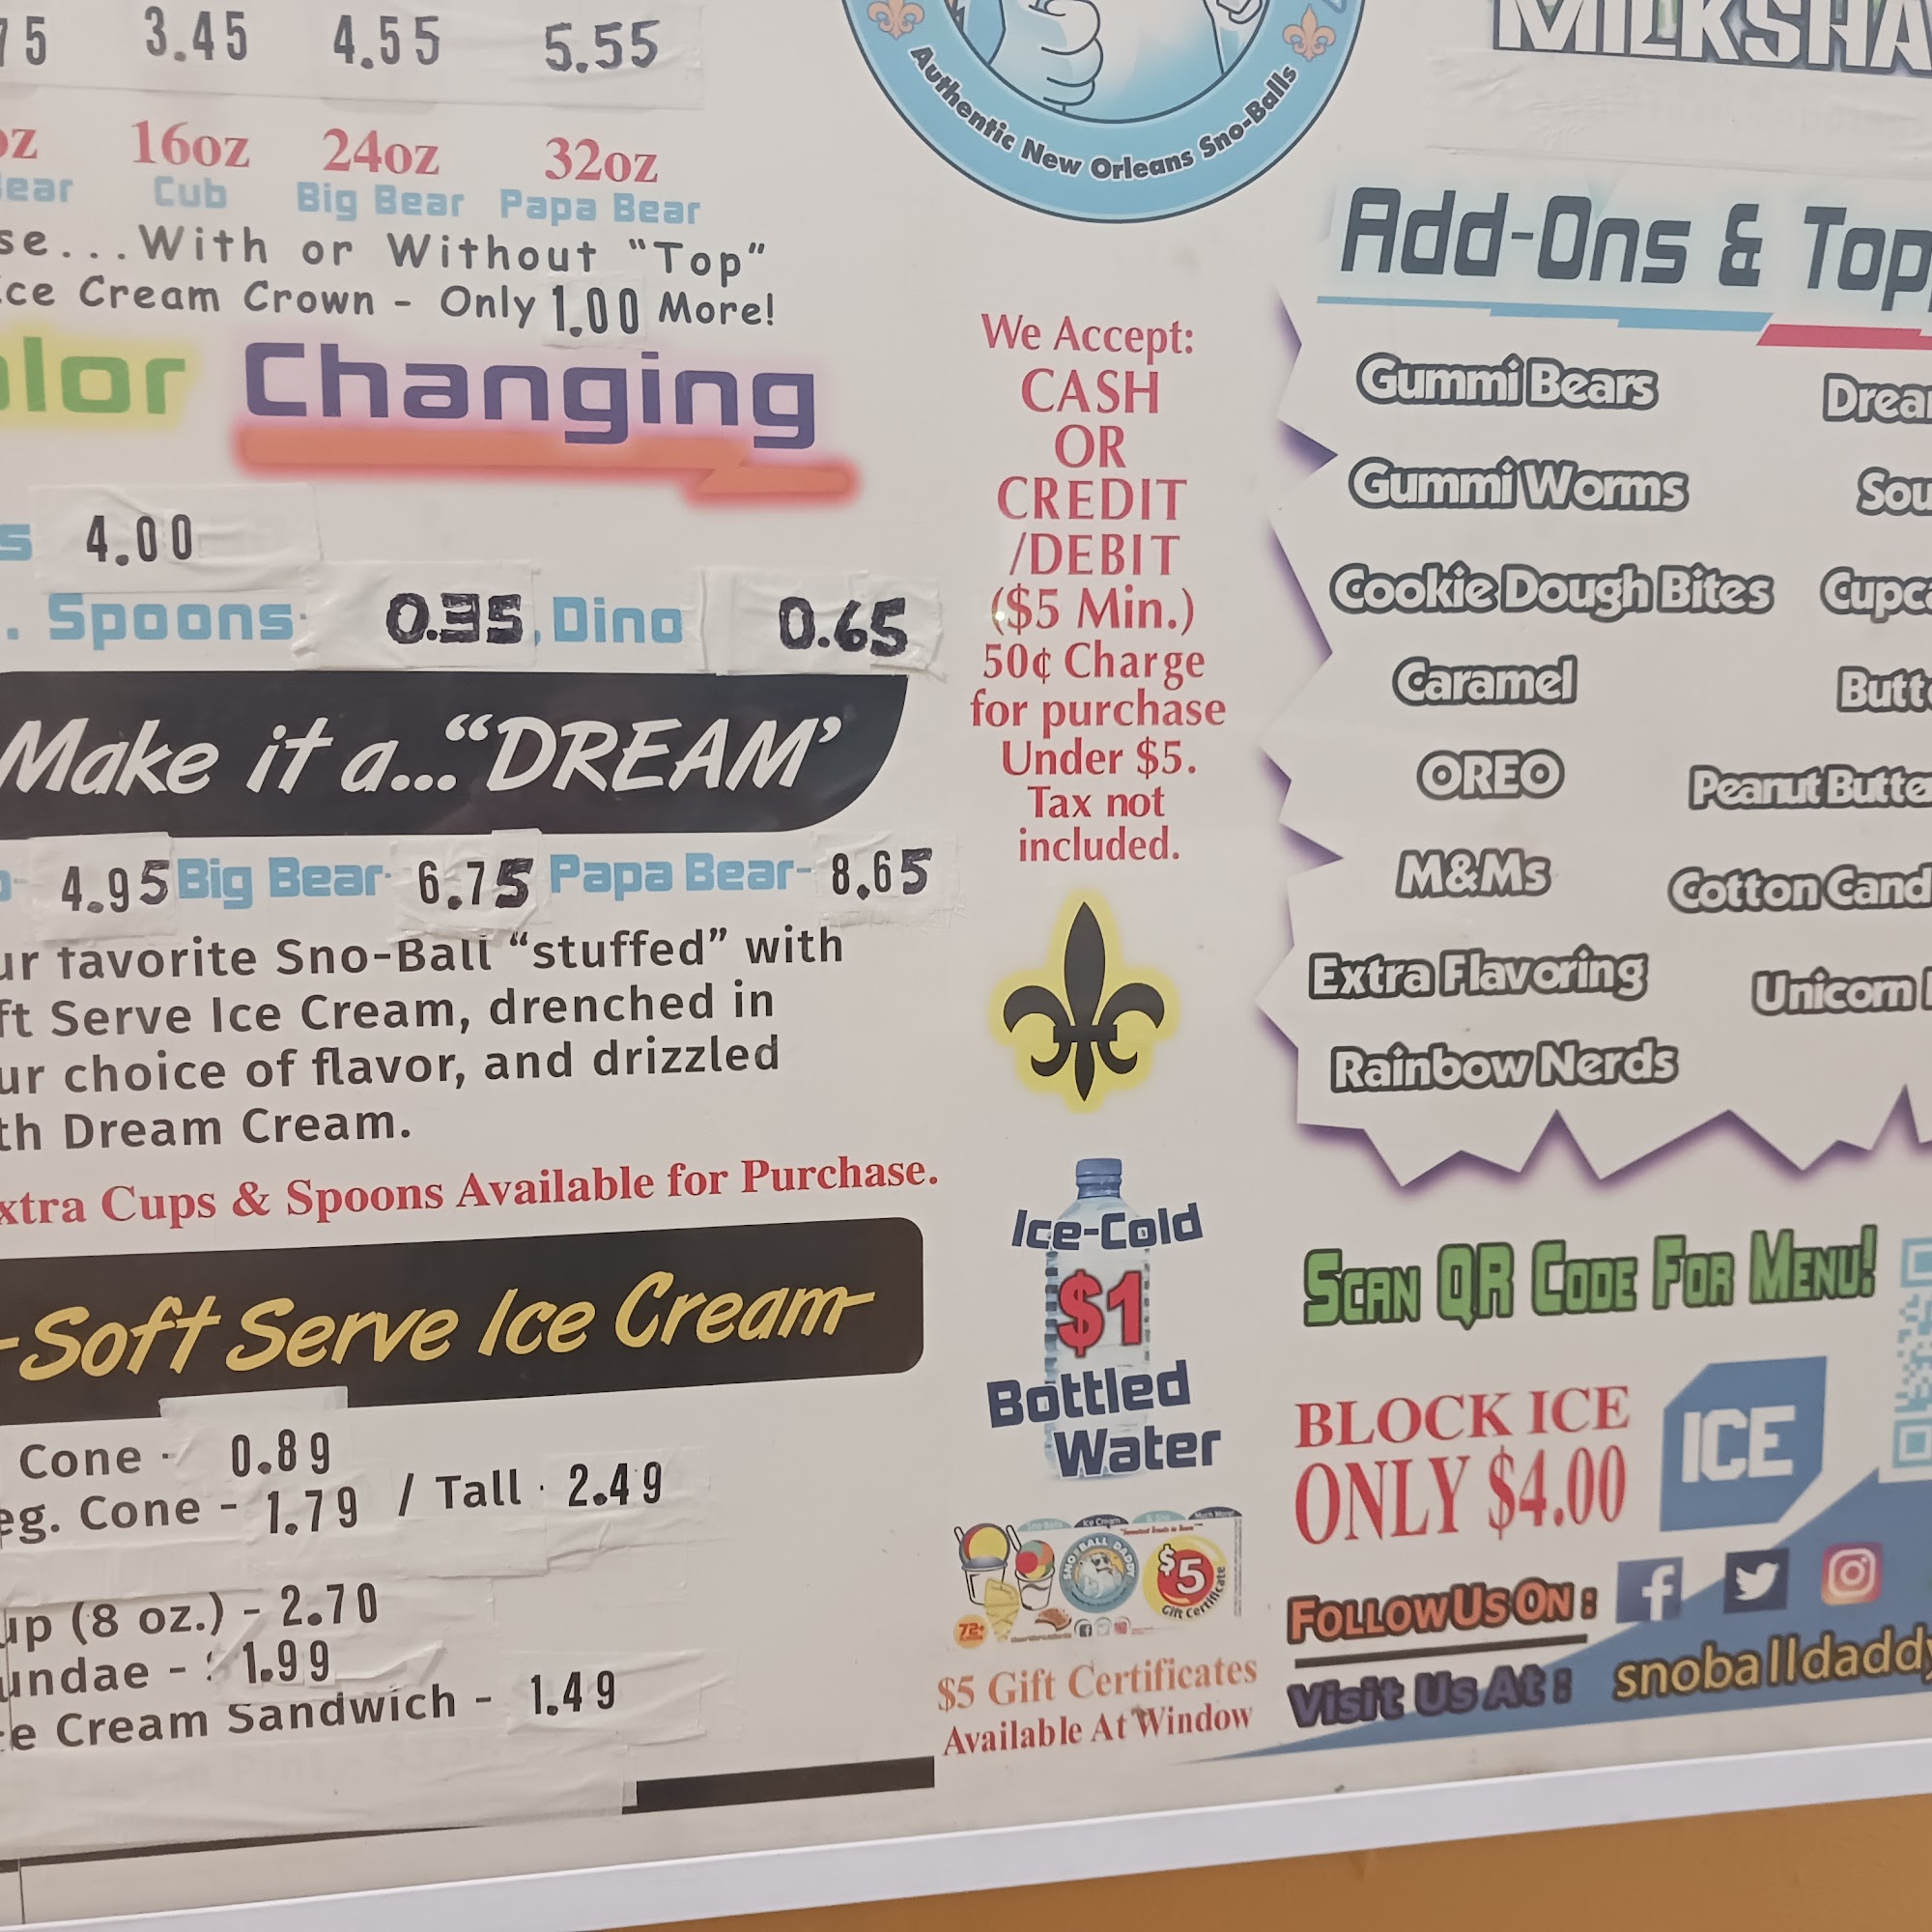 75 3.45 4.55 5.55
oz 16oz 24oz 32oz
ear Cub Big Bear Papa Bear
se...With or Without "Top"
ce Cream Crown - Only 1.00 More!
olor Changing
s 4.00
. Spoons 0.35, Dino 0.65
Make it a..."DREAM'
4.95 Big Bear 6.75 Papa Bear- 8.65
ur favorite Sno-Ball "stuffed" with
ft Serve Ice Cream, drenched in
ur choice of flavor, and drizzled
th Dream Cream.
xtra Cups & Spoons Available for Purchase.
-Soft Serve Ice Cream-
Cone - 0.89
eg. Cone - 1.79 / Tall - 2.49
up (8 oz.) - 2.70
undae - 1.99
e Cream Sandwich - 1.49
Authentic New Orleans Sno-Balls
We Accept:
CASH
OR
CREDIT
/DEBIT
($5 Min.)
50¢ Charge
for purchase
Under $5.
Tax not
included.
Ice-Cold
$1
Bottled
Water
Ice Cream
Much More!
SNOBALL DADDY
$5
Gift Certificate
72+
$5 Gift Certificates
Available At Window
MILKSHA
Add-Ons & Top
Gummi Bears Drea
Gummi Worms Sou
Cookie Dough Bites Cupca
Caramel Butte
OREO Peanut Butte
M&Ms Cotton Cand
Extra Flavoring Unicorn
Rainbow Nerds
Scan QR Code For Menu!
BLOCK ICE
ONLY $4.00
ICE
Follow Us On:
Visit Us At: snoballdaddy